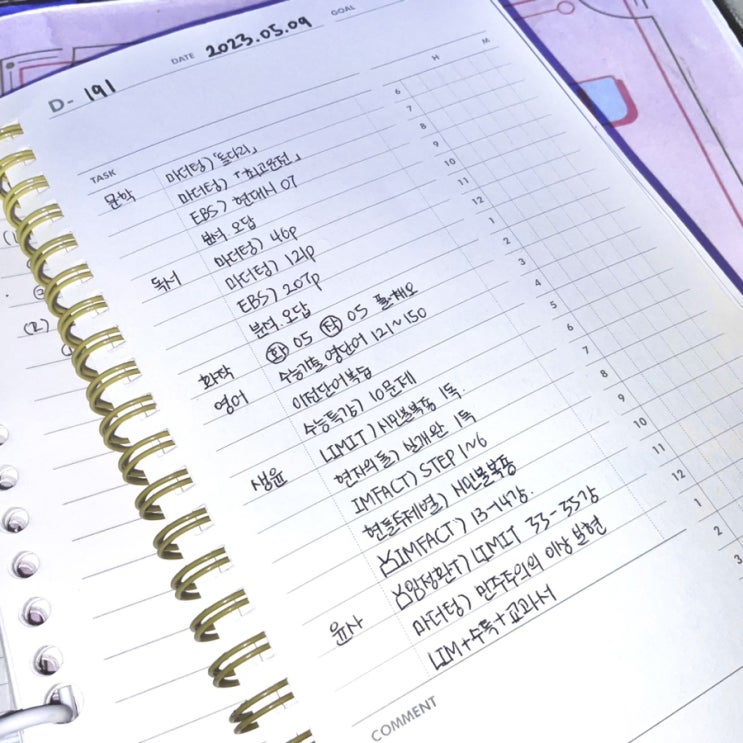 D- 191 DATE 2023.05.09 GOAL
TASK H M
문학 마더텅) 「돌다리」
마더텅) 「최고운전」
EBS) 현대시 07
분석. 오답
독서 마더텅) 46p
마더텅) 121p
EBS) 207p
분석. 오답
화작 화 05 작 05 풀.채.오
영어 수능기출 영단어 121~150
이전단어복습
수능특강) 10문제
생윤 LIMIT) 시민불복종 1독.
현자의돌) 실개완 1독
IMFACT) STEP 1~6
현돌주제별) 시민불복종
IMFACT) 13-14강.
임정환T) LIMIT 33-35강
윤사 마더텅) 민주주의의 이상 실현
LIM+수특+교과서
COMMENT
6
7
8
9
10
11
12
1
2
3
4
5
6
7
8
9
10
11
12
1
2
3
(2)